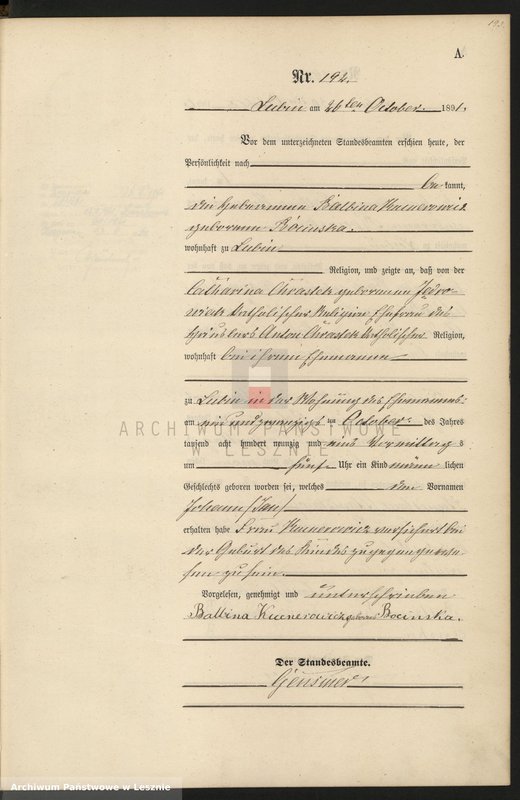 192.
A.
Nr. 192.
Lubin am 26ten October 1891.
Vor dem unterzeichneten Standesbeamten erschien heute, der
Persönlichkeit nach
bekannt,
die Hebeamme Balbina Kucnerowicz
geborene Bocinska.
wohnhaft zu Lubin
Religion, und zeigte an, daß von der
Catharina Chrastek geborenen
katholischer Religion Ehefrau des
Häuslers Anton Chrastek katholischer Religion,
wohnhaft bei ihrem Ehemanne
zu Lubin in der Wohnung des Ehemannes
am ein und zwanzigsten October des Jahres
tausend acht hundert neunzig und eins Vormittags
um fünf Uhr ein Kind männlichen
Geschlechts geboren worden sei, welches den Vornamen
Johann (Jan)
erhalten habe Frau Kucnerowicz versichert bei
der Geburt des Kindes zugegen gewe-
sen zu sein.
Vorgelesen, genehmigt und unterschrieben
Balbina Kucnerowicz geborene Bocinska.
Der Standesbeamte.
ARCHIWUM PAŃSTWOWE
W LESZNIE
Archiwum Państwowe w Lesznie